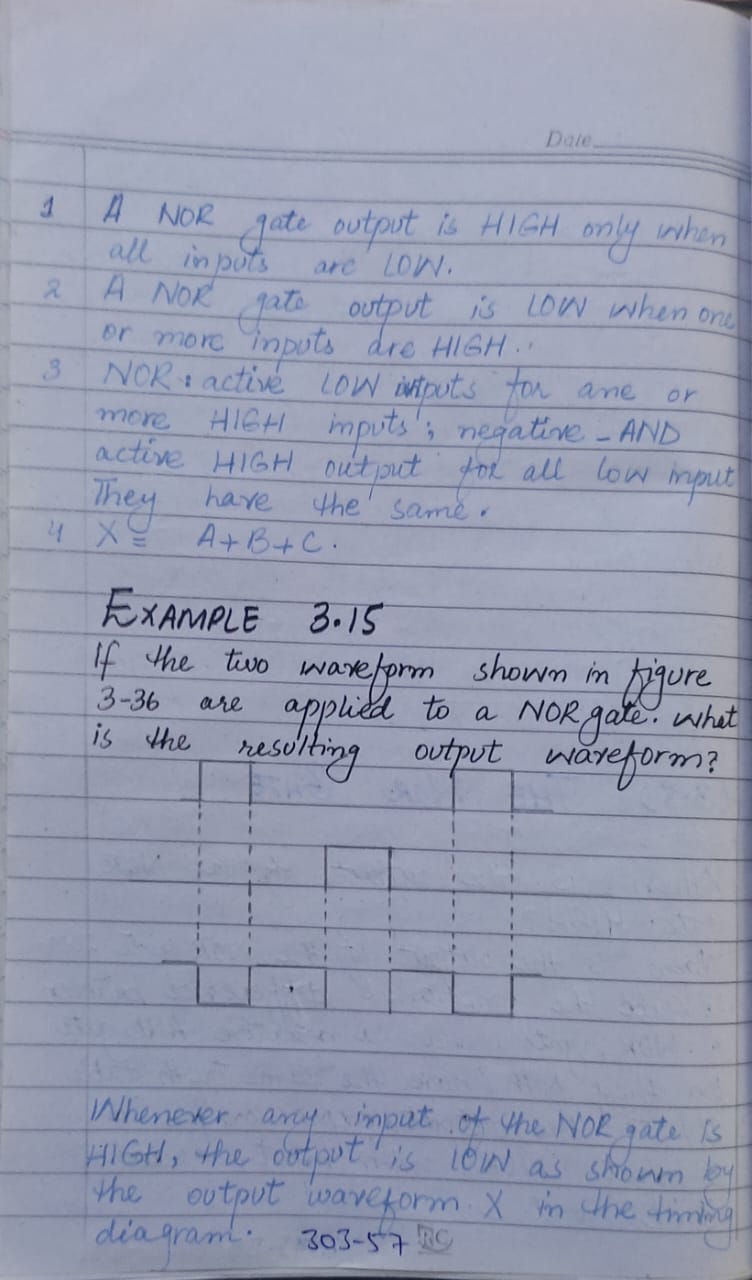 Date
1 A NOR gate output is HIGH only when
all inputs are LOW.
2 A NOR gate output is LOW when one
or more inputs are HIGH.
3 NOR: active LOW intputs for ane or
more HIGH inputs; negative - AND
active HIGH output for all low input
They have the same.
4 X = A+B+C.
EXAMPLE 3.15
If the two waveform shown in figure
3-36 are applied to a NOR gate. what
is the resulting output waveform?
Whenever any input of the NOR gate is
HIGH, the output is LOW as shown by
the output waveform X in the timing
diagram. 303-57 RC